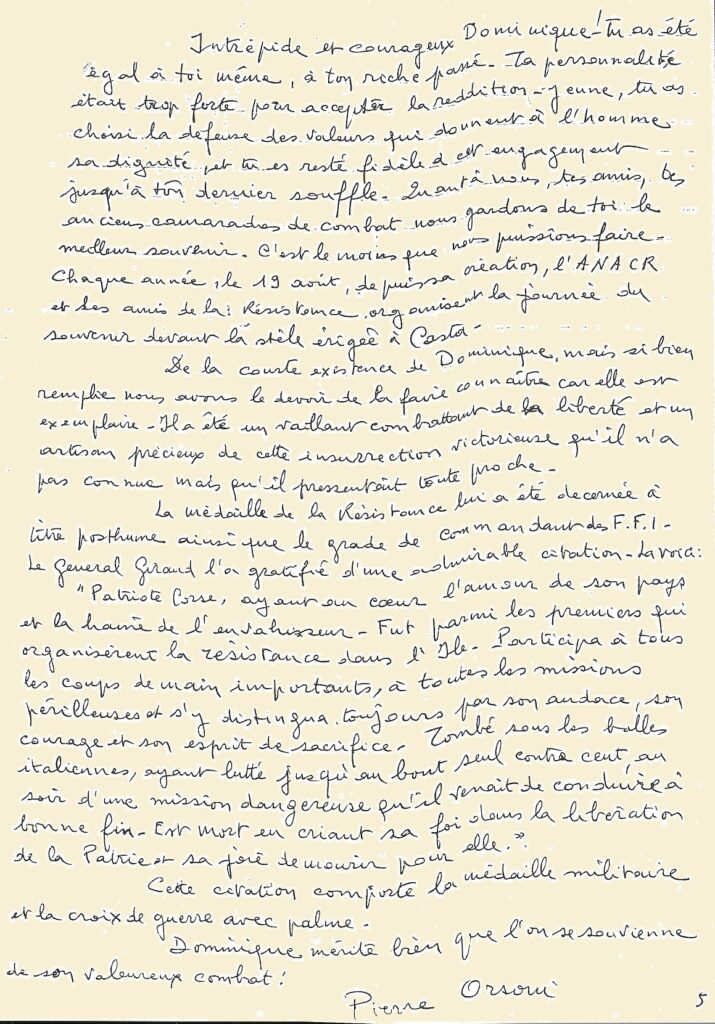 Intrépide et courageux Dominique! Tu as été
égal à toi même, à ton riche passé. Ta personnalité
était trop forte pour accepter la reddition - jeune, tu as
choisi la défense des valeurs qui donnent à l'homme
sa dignité, et tu es resté fidèle à cet engagement
jusqu'à ton dernier souffle. Quant à nous, tes amis, tes
anciens camarades de combat nous gardons de toi le
meilleur souvenir. C'est le moins que nous puissions faire.
Chaque année, le 19 août, depuis sa création, l'ANACR
et ses amis de la Résistance organisent la journée du
souvenir devant la stèle érigée à Casta.
De la courte existence de Dominique, mais si bien
remplie nous avons le devoir de la faire connaître car elle est
exemplaire. Il a été un vaillant combattant de la liberté et un
artisan précieux de cette insurrection victorieuse qu'il n'a
pas connue mais qu'il pressentait toute proche.
La médaille de la Résistance lui a été décernée à
titre posthume ainsi que le grade de commandant des F.F.I.
Le Général Giraud l'a gratifié d'une admirable citation. La voici:
"Patriote Corse, ayant au cœur l'amour de son pays
et la haine de l'envahisseur. Fut parmi les premiers qui
organisèrent la résistance dans l'Ile. Participa à tous
les coups de main importants, à toutes les missions
périlleuses et s'y distingua toujours par son audace, son
courage et son esprit de sacrifice. Tombé sous les balles
italiennes, ayant lutté jusqu'au bout seul contre cent, au
soir d'une mission dangereuse qu'il venait de conduire à
bonne fin. Est mort en criant sa foi dans la libération
de la Patrie et sa joie de mourir pour elle."
Cette citation comporte la médaille militaire
et la croix de guerre avec palme.
Dominique mérite bien que l'on se souvienne
de son valeureux combat!
Pierre Orsoni
5